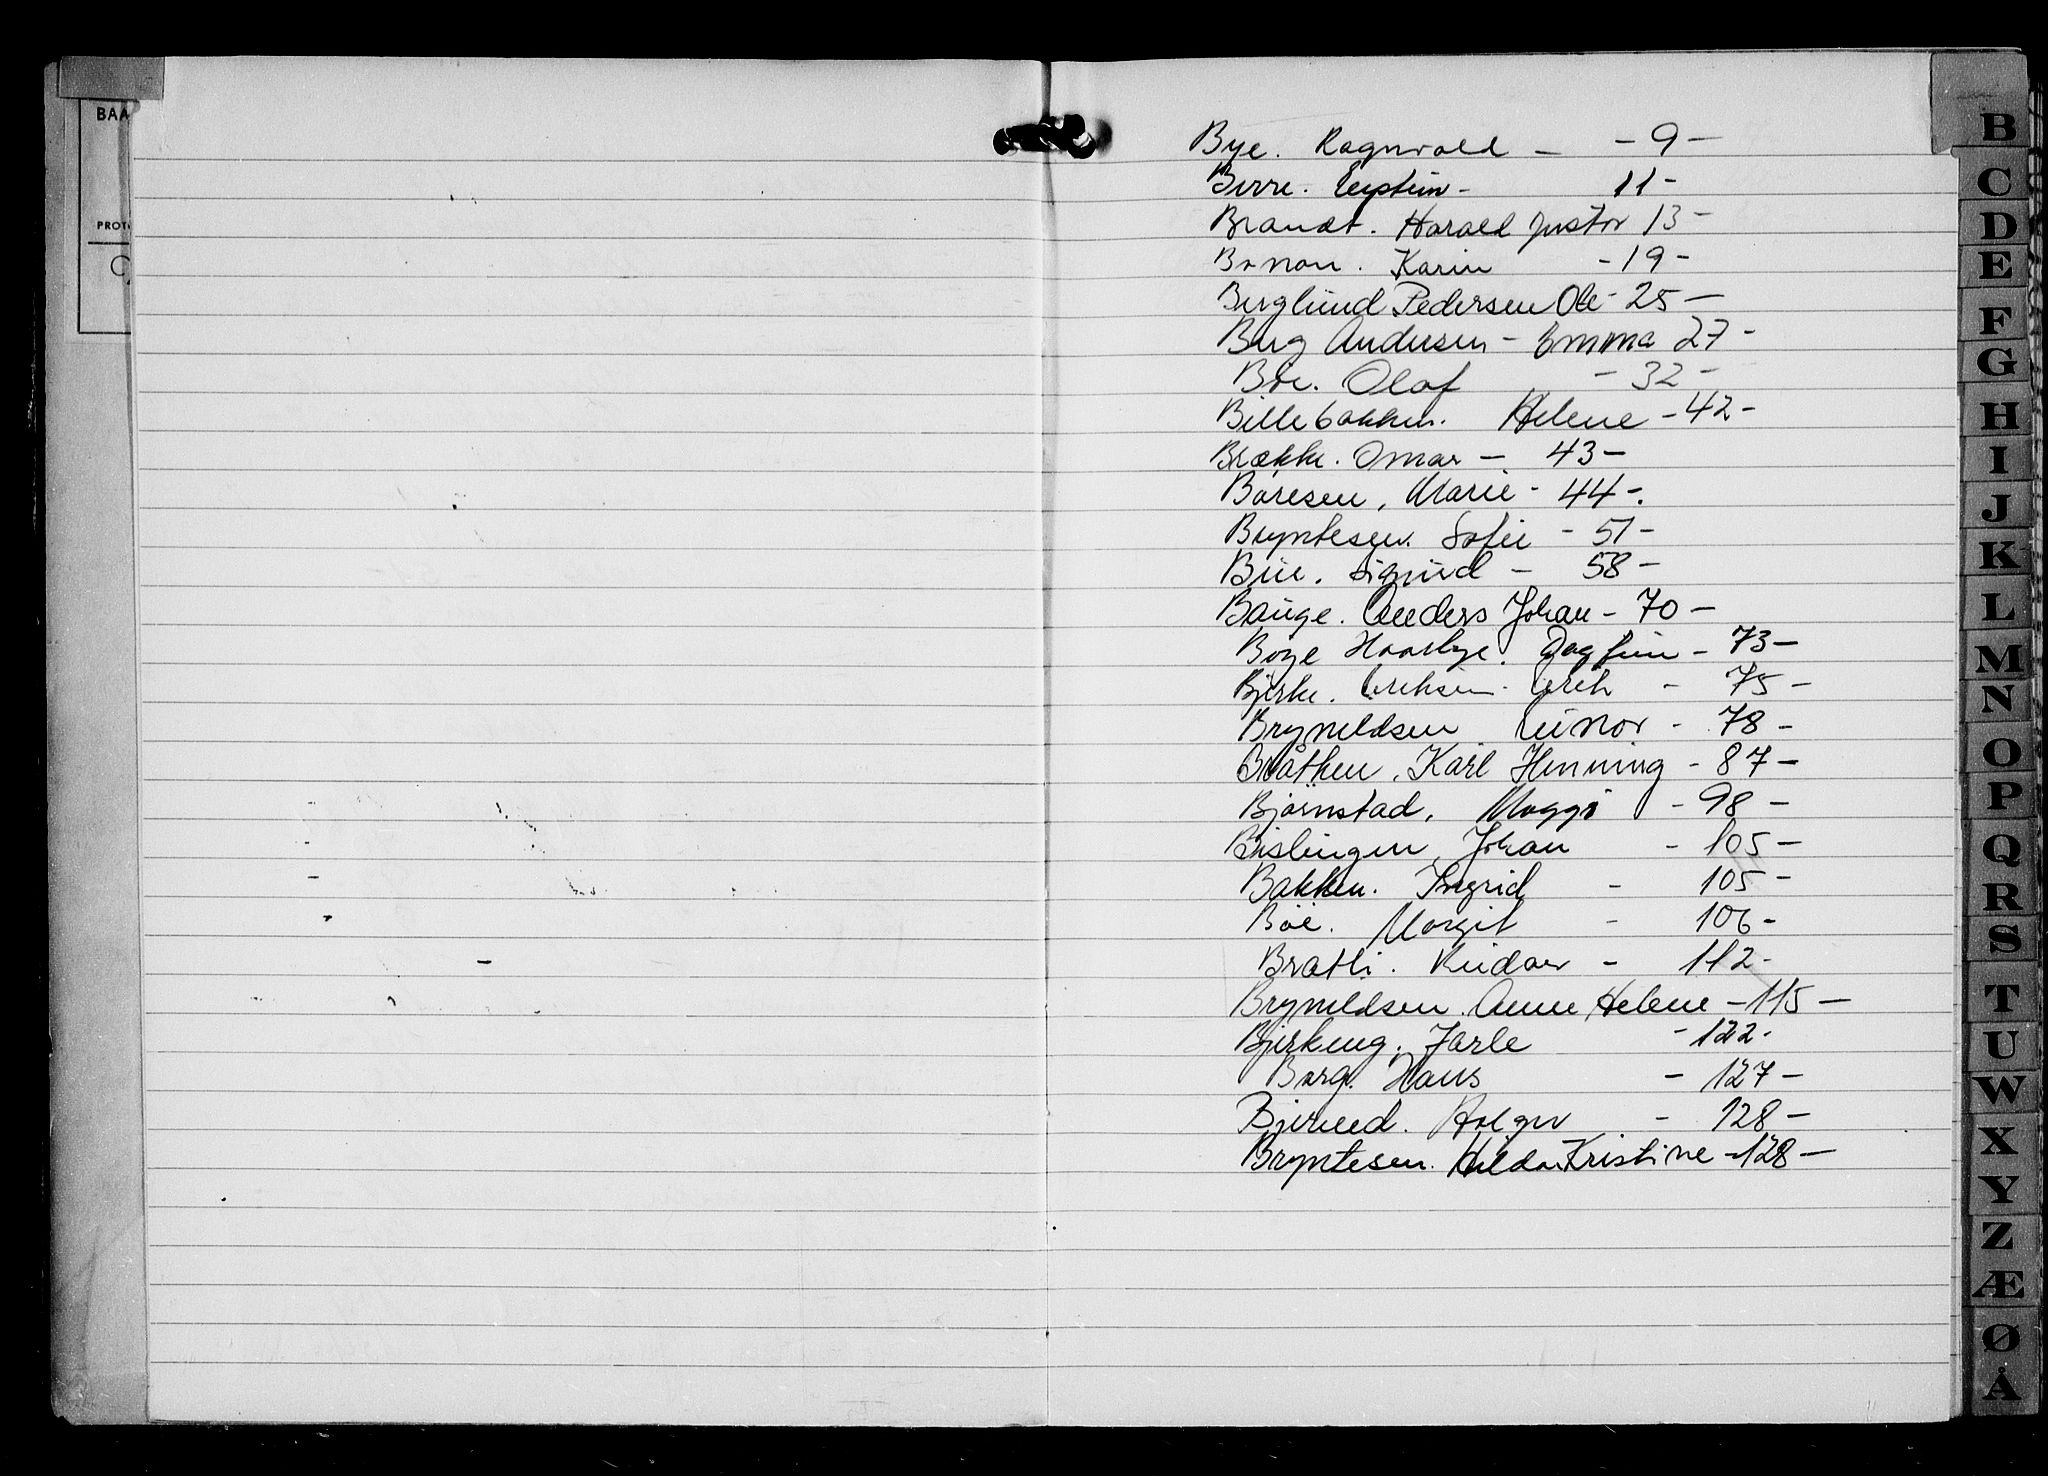 BAA
PROTO
Bye. Ragnvald - - 9 -
Birre. Eystein - 11 -
Brandt. Harald Justor 13 -
Karin - 19 -
Berglund Pedersen Ole - 25 -
Berg Andersen - Emma 27 -
Boe. Olaf - 32 -
Billebakken. Helene - 42 -
Brække. Omar - 43 -
Båresen, Marie - 44 -.
Bryntesen. Sofie - 51 -
Bue. Sigurd - 58 -
Bauge. Anders Johan - 70 -
Boye Haarbye. Dagfinn - 73 -
Bjerke. Eriksen. Erik - 75 -
Bryneldsen Einar - 78 -
Bråthen, Karl Henning - 87 -
Bjørnstad, Maggi - 98 -
Bislingen, Johan - 105 -
Bakken. Ingrid - 105 -
Böe. Margit - 106 -
Bratli. Reidar - 112 -
Bryneldsen. Anne Helene - 115 -
Bjerkeng. Jarle - 122 -
Borg. Hans - 127 -
Bjerned. Holger - 128 -
Bryntesen. Hilda Kristine - 128 -
B
C
D
E
F
G
H
I
J
K
L
M
N
O
P
Q
R
S
T
U
W
X
Y
Z
Æ
Ø
Å